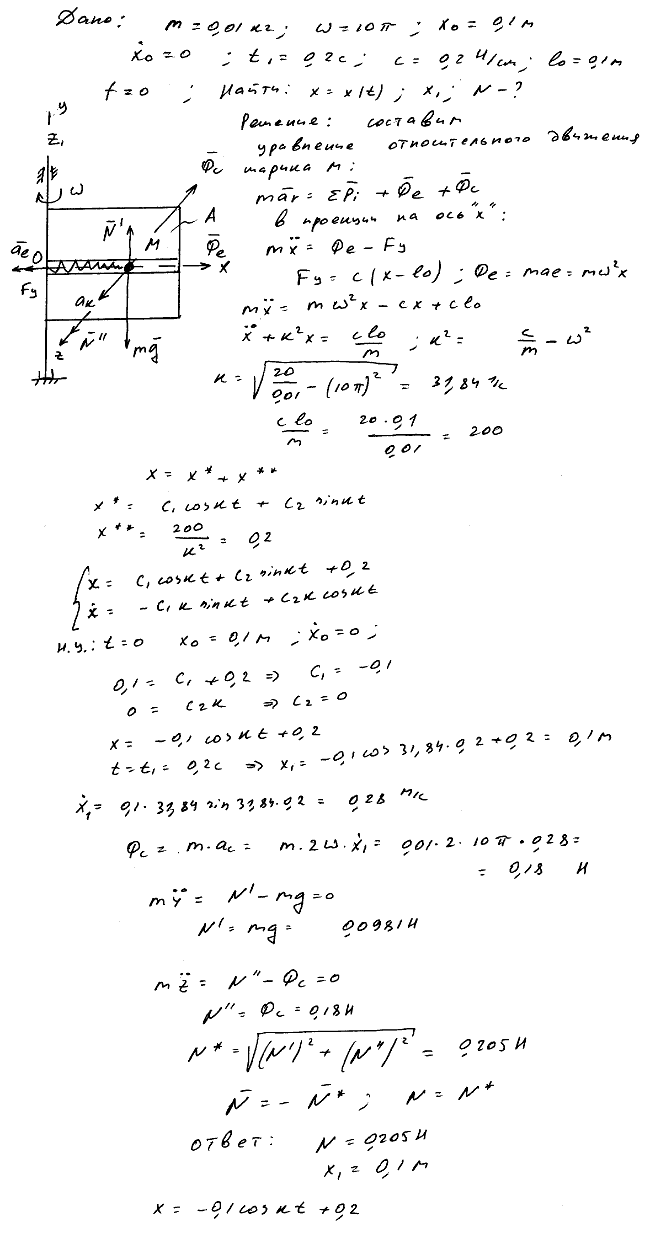 Дано: m = 0,01 кг ; ω = 10π ; x₀ = 0,1 м
ẋ₀ = 0 ; t₁ = 0,2 с ; c = 0,2 Н/см ; l₀ = 0,1 м
f = 0 ; Найти: x = x(t) ; x₁ ; N - ?
Решение: составим
уравнение относительного движения
шарика M:
mā̄r = ΣP̄i + Φ̄e + Φ̄c
в проекции на ось "x":
mẍ = Φe − Fy
Fy = c(x − l₀) ; Φe = mae = mω²x
mẍ = mω²x − cx + cl₀
ẍ + к²x = cl₀/m ; к² = c/m − ω²
к = √(20/0,01 − (10π)²) = 31,84 1/с
cl₀/m = 20·0,1/0,01 = 200
y
z₁
ω
Φ̄c
N̄'
M
A
āe
O
Φ̄e
x
Fy
aк
N̄"
z
mḡ
x = x* + x**
x* = C₁ cosкt + C₂ sinкt
x** = 200/к² = 0,2
x = C₁ cosкt + C₂ sinкt + 0,2
ẋ = −C₁к sinкt + C₂к cosкt
н.у.: t = 0 x₀ = 0,1 м ; ẋ₀ = 0 ;
0,1 = C₁ + 0,2 ⇒ C₁ = −0,1
0 = C₂к ⇒ C₂ = 0
x = −0,1 cosкt + 0,2
t = t₁ = 0,2с ⇒ x₁ = −0,1 cos 31,84·0,2 + 0,2 = 0,1 м
ẋ₁ = 0,1·31,84 sin 31,84·0,2 = 0,28 м/с
Φc = m·ac = m·2ω·ẋ₁ = 0,01·2·10π·0,28 =
= 0,18 Н
mÿ = N' − mg = 0
N' = mg = 0,0981Н
mz̈ = N" − Φc = 0
N" = Φc = 0,18Н
N* = √((N')² + (N")²) = 0,205 Н
N̄ = − N̄* ; N = N*
ответ: N = 0,205Н
x₁ = 0,1 м
x = −0,1 cosкt + 0,2